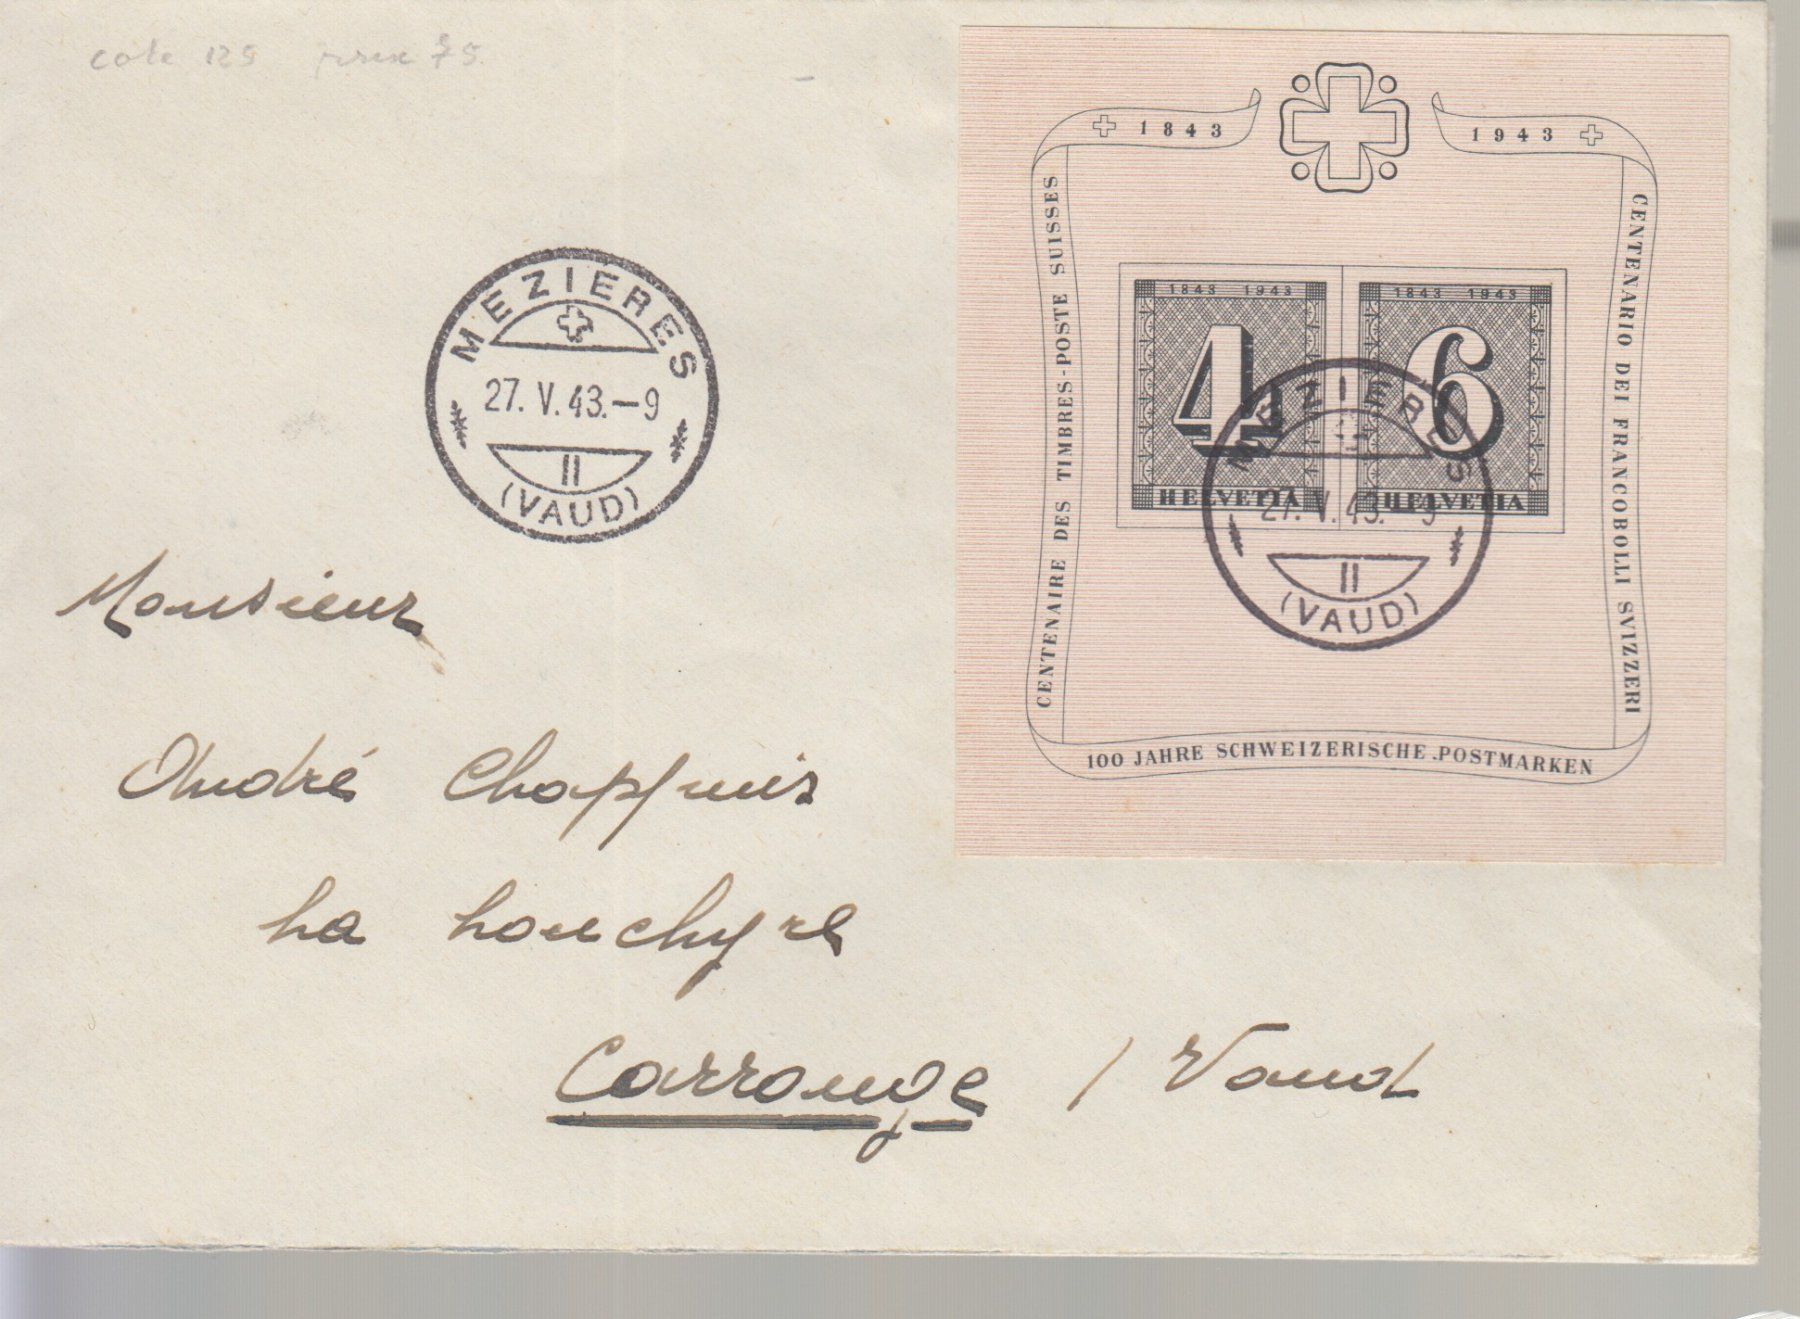 cote 125 prix 75
1843 1943
CENTENAIRE DES TIMBRES-POSTE SUISSES
CENTENARIO DEI FRANCOBOLLI SVIZZERI
1843 1943
4
HELVETIA
1843 1943
6
HELVETIA
MEZIERES
27. V. 43. - 9
II
(VAUD)
100 JAHRE SCHWEIZERISCHE POSTMARKEN
MEZIERES
27. V. 43. - 9
II
(VAUD)
Monsieur
André Chappuis
La
Carrouge / Vaud